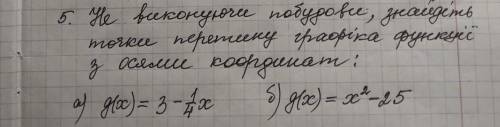 5. Не виконуючи побудови, знайдіть
точки перетину графіка функції
з осями координат:
а) g(x) = 3 - 1/4 x б) g(x) = x² - 25